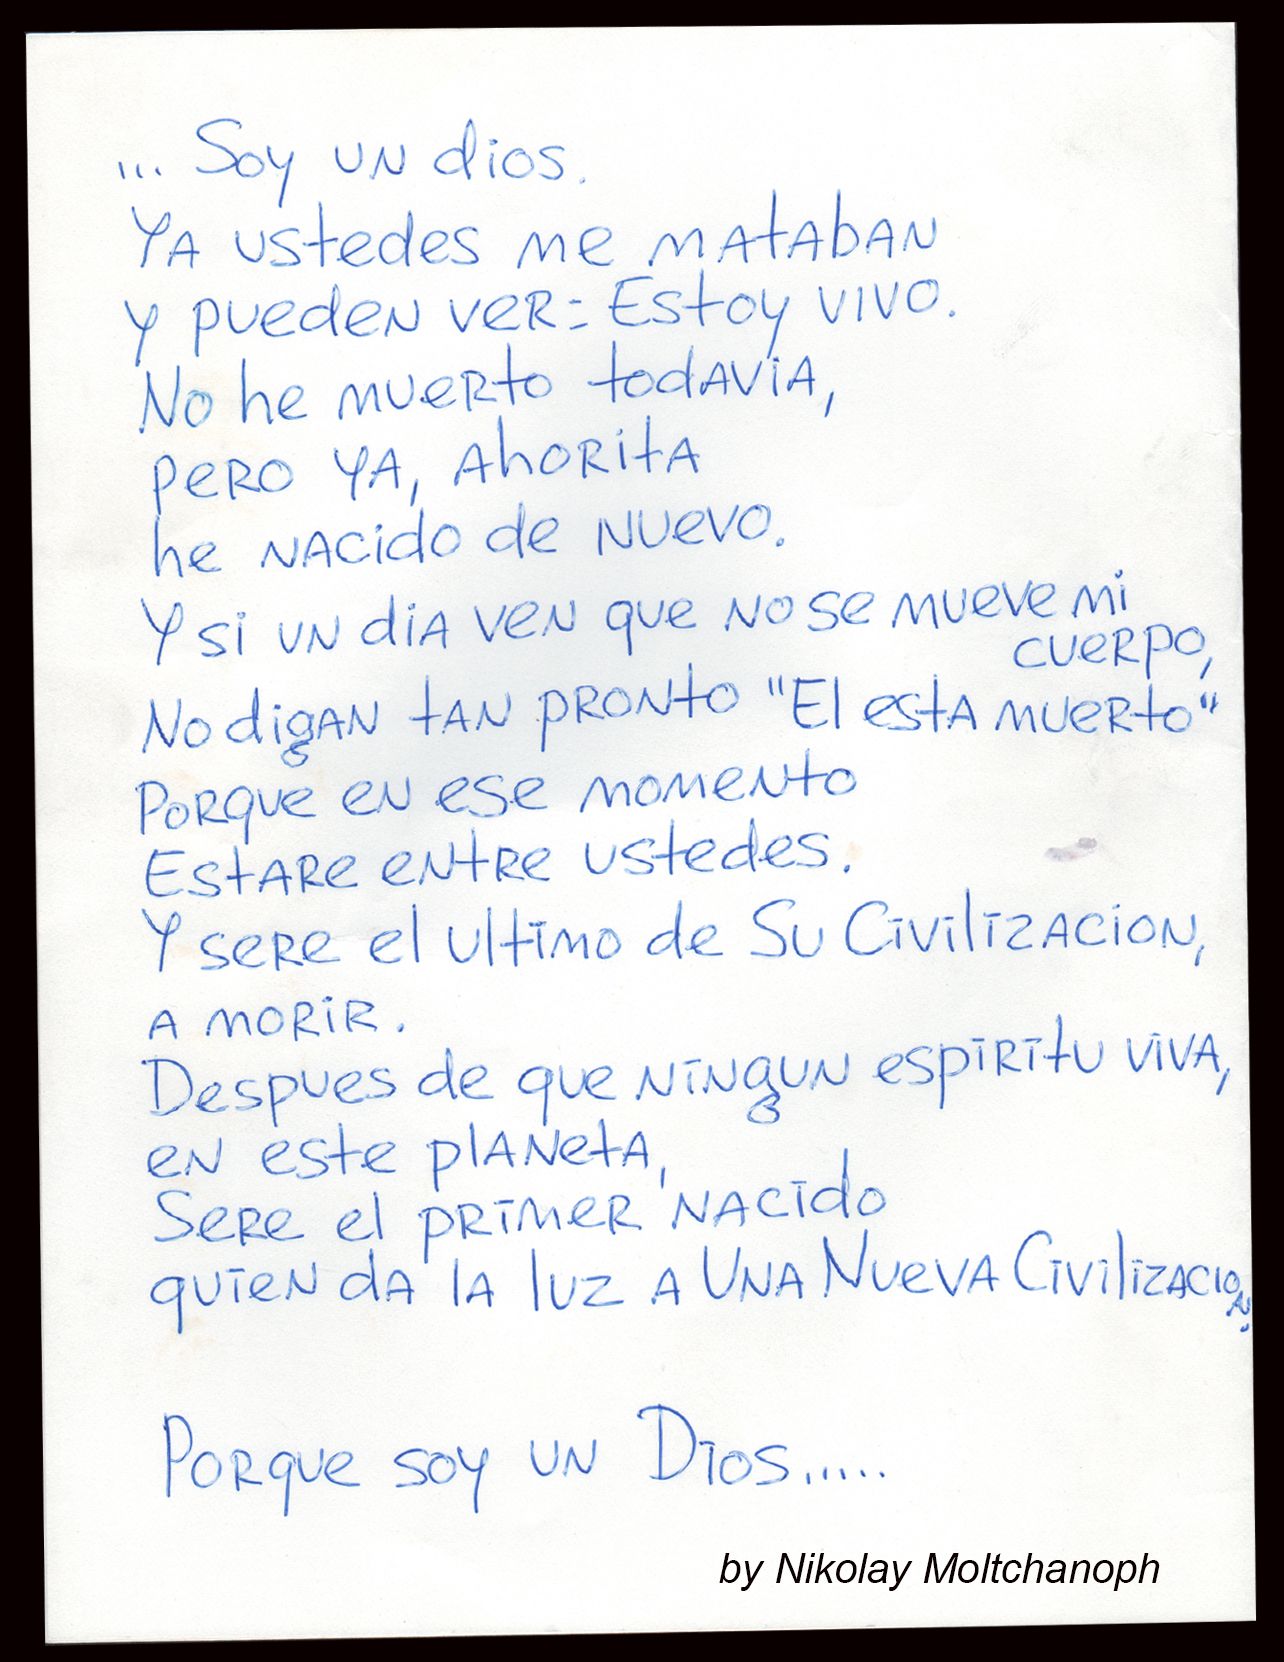 ... Soy un dios.
Ya ustedes me mataban
y pueden ver: Estoy vivo.
No he muerto todavia,
pero ya, ahorita
he nacido de nuevo.
Y si un dia ven que no se mueve mi
cuerpo,
No digan tan pronto "El esta muerto"
Porque en ese momento
Estare entre ustedes.
Y sere el ultimo de Su Civilizacion,
a morir.
Despues de que ningun espiritu viva,
en este planeta,
Sere el primer nacido
quien da la luz a Una Nueva Civilizacion.
Porque soy un Dios.....
by Nikolay Moltchanoph